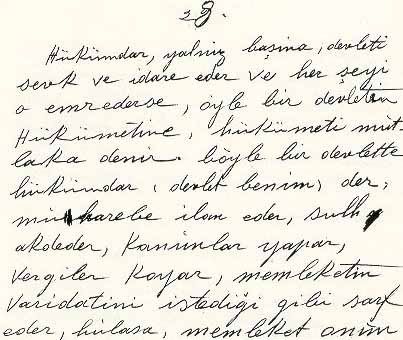 28.
Hükümdar, yalnız başına, devleti
sevk ve idare eder ve her şeyi
o emrederse, öyle bir devletin
Hükümetine, hükümeti mut-
laka denir. böyle bir devlette
hükümdar, devlet benim, der,
muharebe ilan eder, sulh
akdeder, Kanunlar yapar,
vergiler koyar, memleketin
varidatını istediği gibi sarf
eder, hülasa, memleket onun